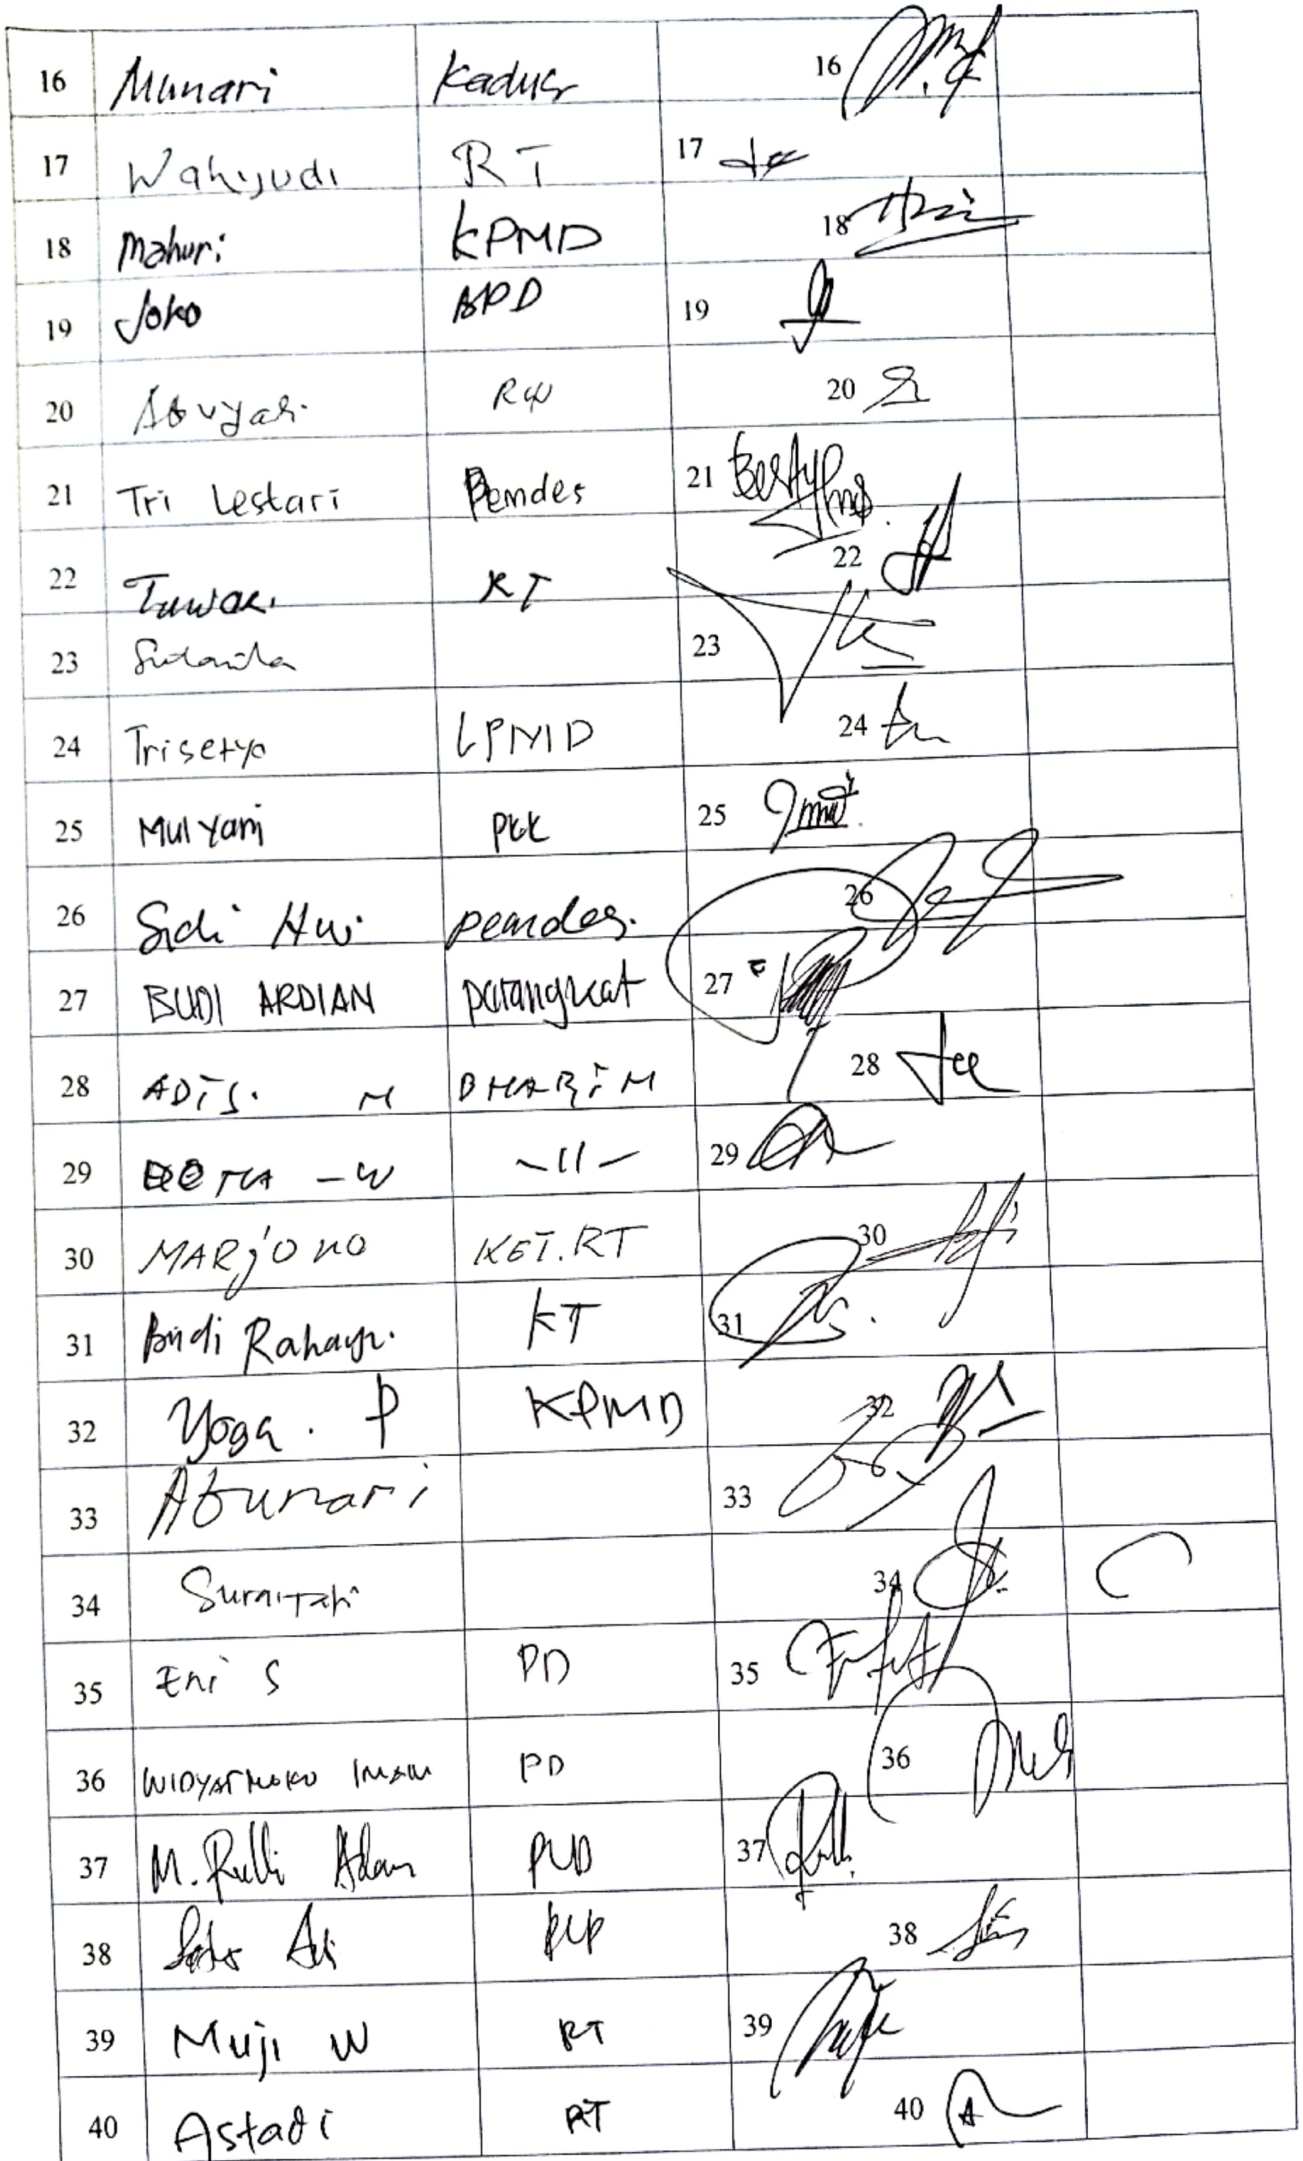 16 Munari Kadus 16
17 Wahyudi RT 17
18 Mahuri KPMD 18
19 Joko BPD 19
20 RW 20
21 Tri Lestari Pemdes 21
22 RT 22
23 23
24 Trisetyo LPMD 24
25 Mulyani PKK 25
26 Pemdes. 26
27 BUDI ARDIAN parangkat 27
28 ADIS. M 28
29 - W -11- 29
30 MARjONO KET.RT 30
31 Budi Rahayu. KT 31
32 Yoga. P KPMD 32
33 Abunari 33
34 34
35 Eni S PD 35
36 WIDYATMOKO IMAM PD 36
37 M. Rulli Adam 37
38 38
39 Muji W RT 39
40 Astadi RT 40